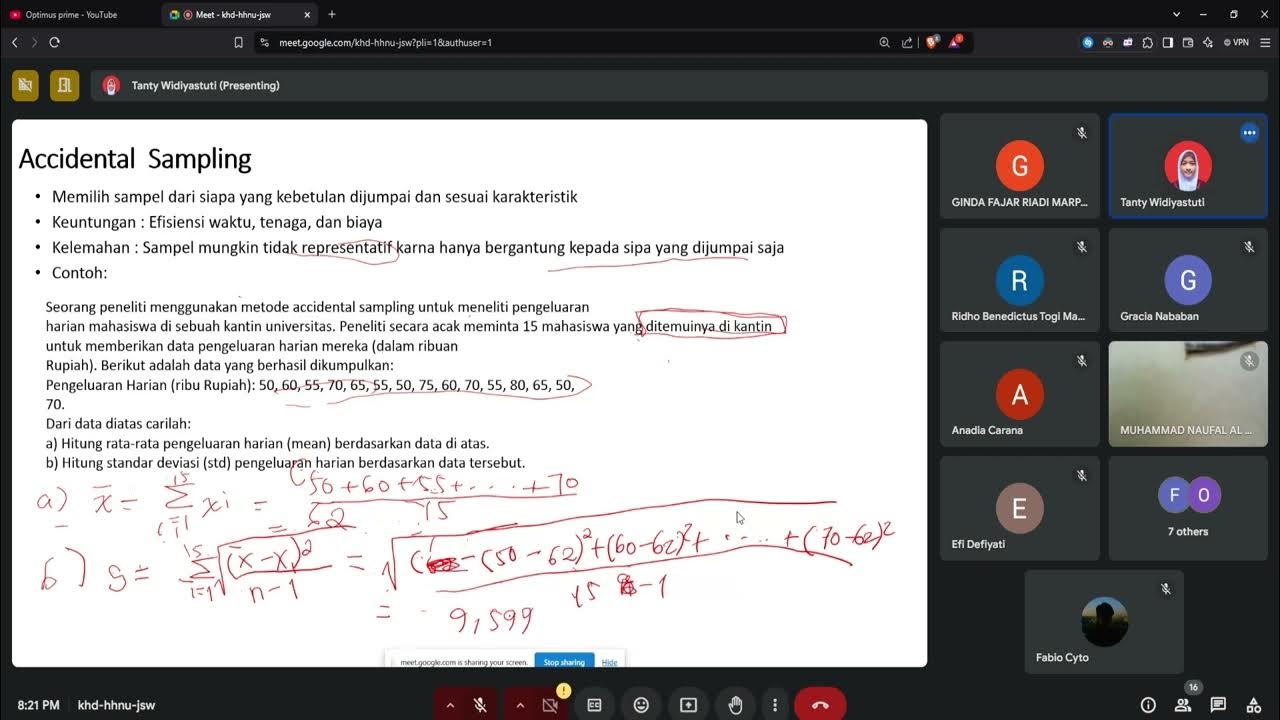 Optimus prime - YouTube
Meet - khd-hhnu-jsw
meet.google.com/khd-hhnu-jsw?pli=1&authuser=1
VPN
Tanty Widiyastuti (Presenting)
Accidental Sampling
• Memilih sampel dari siapa yang kebetulan dijumpai dan sesuai karakteristik
• Keuntungan : Efisiensi waktu, tenaga, dan biaya
• Kelemahan : Sampel mungkin tidak representatif karna hanya bergantung kepada sipa yang dijumpai saja
• Contoh:
Seorang peneliti menggunakan metode accidental sampling untuk meneliti pengeluaran
harian mahasiswa di sebuah kantin universitas. Peneliti secara acak meminta 15 mahasiswa yang ditemuinya di kantin
untuk memberikan data pengeluaran harian mereka (dalam ribuan
Rupiah). Berikut adalah data yang berhasil dikumpulkan:
Pengeluaran Harian (ribu Rupiah): 50, 60, 55, 70, 65, 55, 50, 75, 60, 70, 55, 80, 65, 50,
70.
Dari data diatas carilah:
a) Hitung rata-rata pengeluaran harian (mean) berdasarkan data di atas.
b) Hitung standar deviasi (std) pengeluaran harian berdasarkan data tersebut.
a) x̄ = 15 Σ i=1 xi = (50+60+55+....+70
15
= 62
b) s = 15 Σ i=1 √(x-x)² = √(50-62)²+(60-62)²+....+(70-62)²
n-1 15-1
= 9,599
meet.google.com is sharing your screen.
Stop sharing
Hide
GINDA FAJAR RIADI MARP...
Tanty Widiyastuti
Ridho Benedictus Togi Ma...
Gracia Nababan
Anadia Carana
MUHAMMAD NAUFAL AL ...
Efi Defiyati
7 others
Fabio Cyto
G
R
G
A
E
F
O
8:21 PM
khd-hhnu-jsw
16